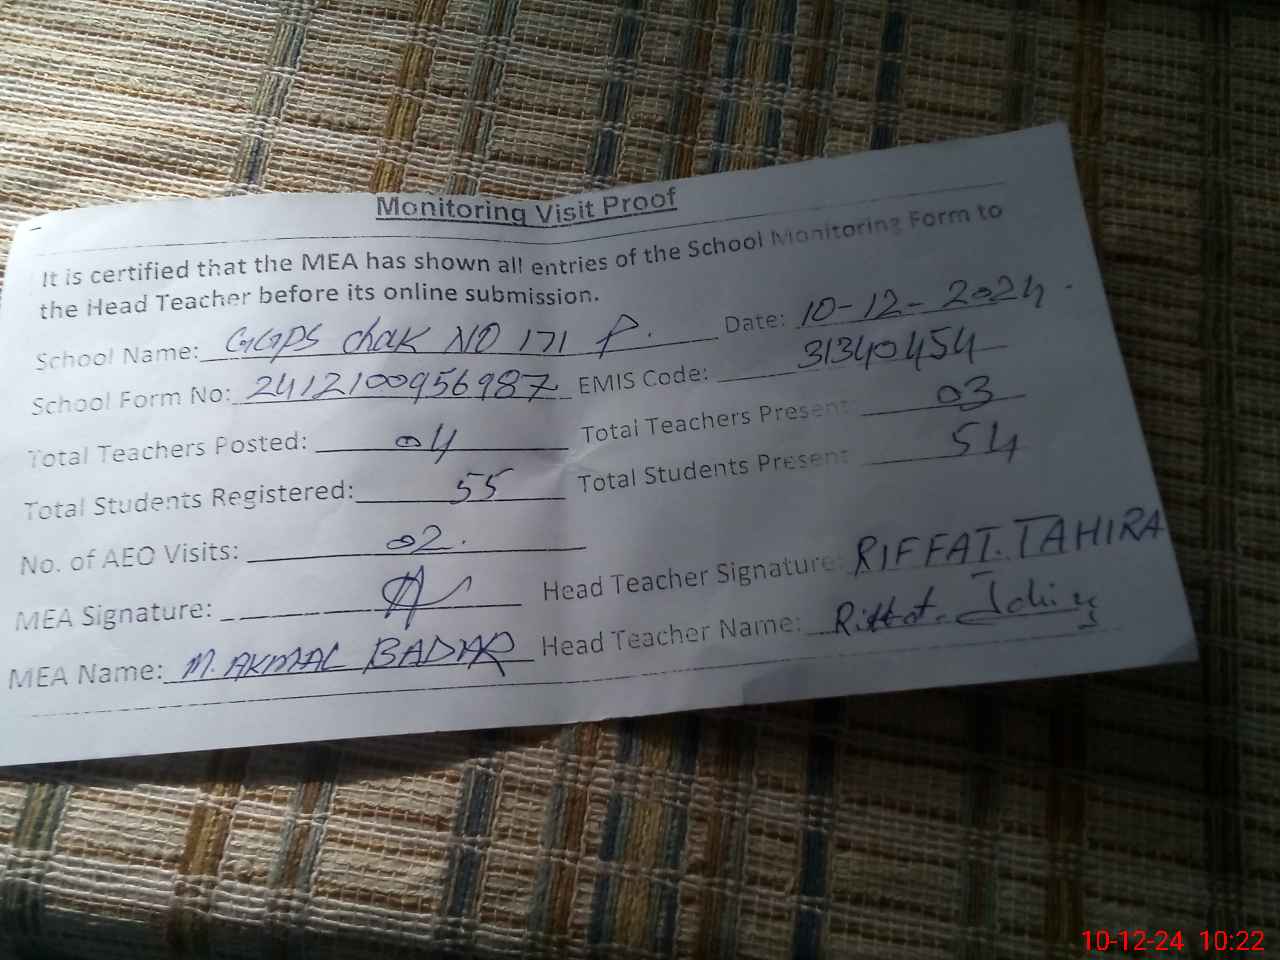 Monitoring Visit Proof
It is certified that the MEA has shown all entries of the School Monitoring Form to
the Head Teacher before its online submission.
School Name: GGPS chak NO 171 P. Date: 10-12-2024
School Form No: 2412100956987 EMIS Code: 31340454
Total Teachers Posted: 04 Total Teachers Present: 03
Total Students Registered: 55 Total Students Present: 54
No. of AEO Visits: 02.
MEA Signature: Head Teacher Signature: RIFFAT. TAHIRA
MEA Name: M. AKMAL BADAR Head Teacher Name: Riffat
10-12-24 10:22